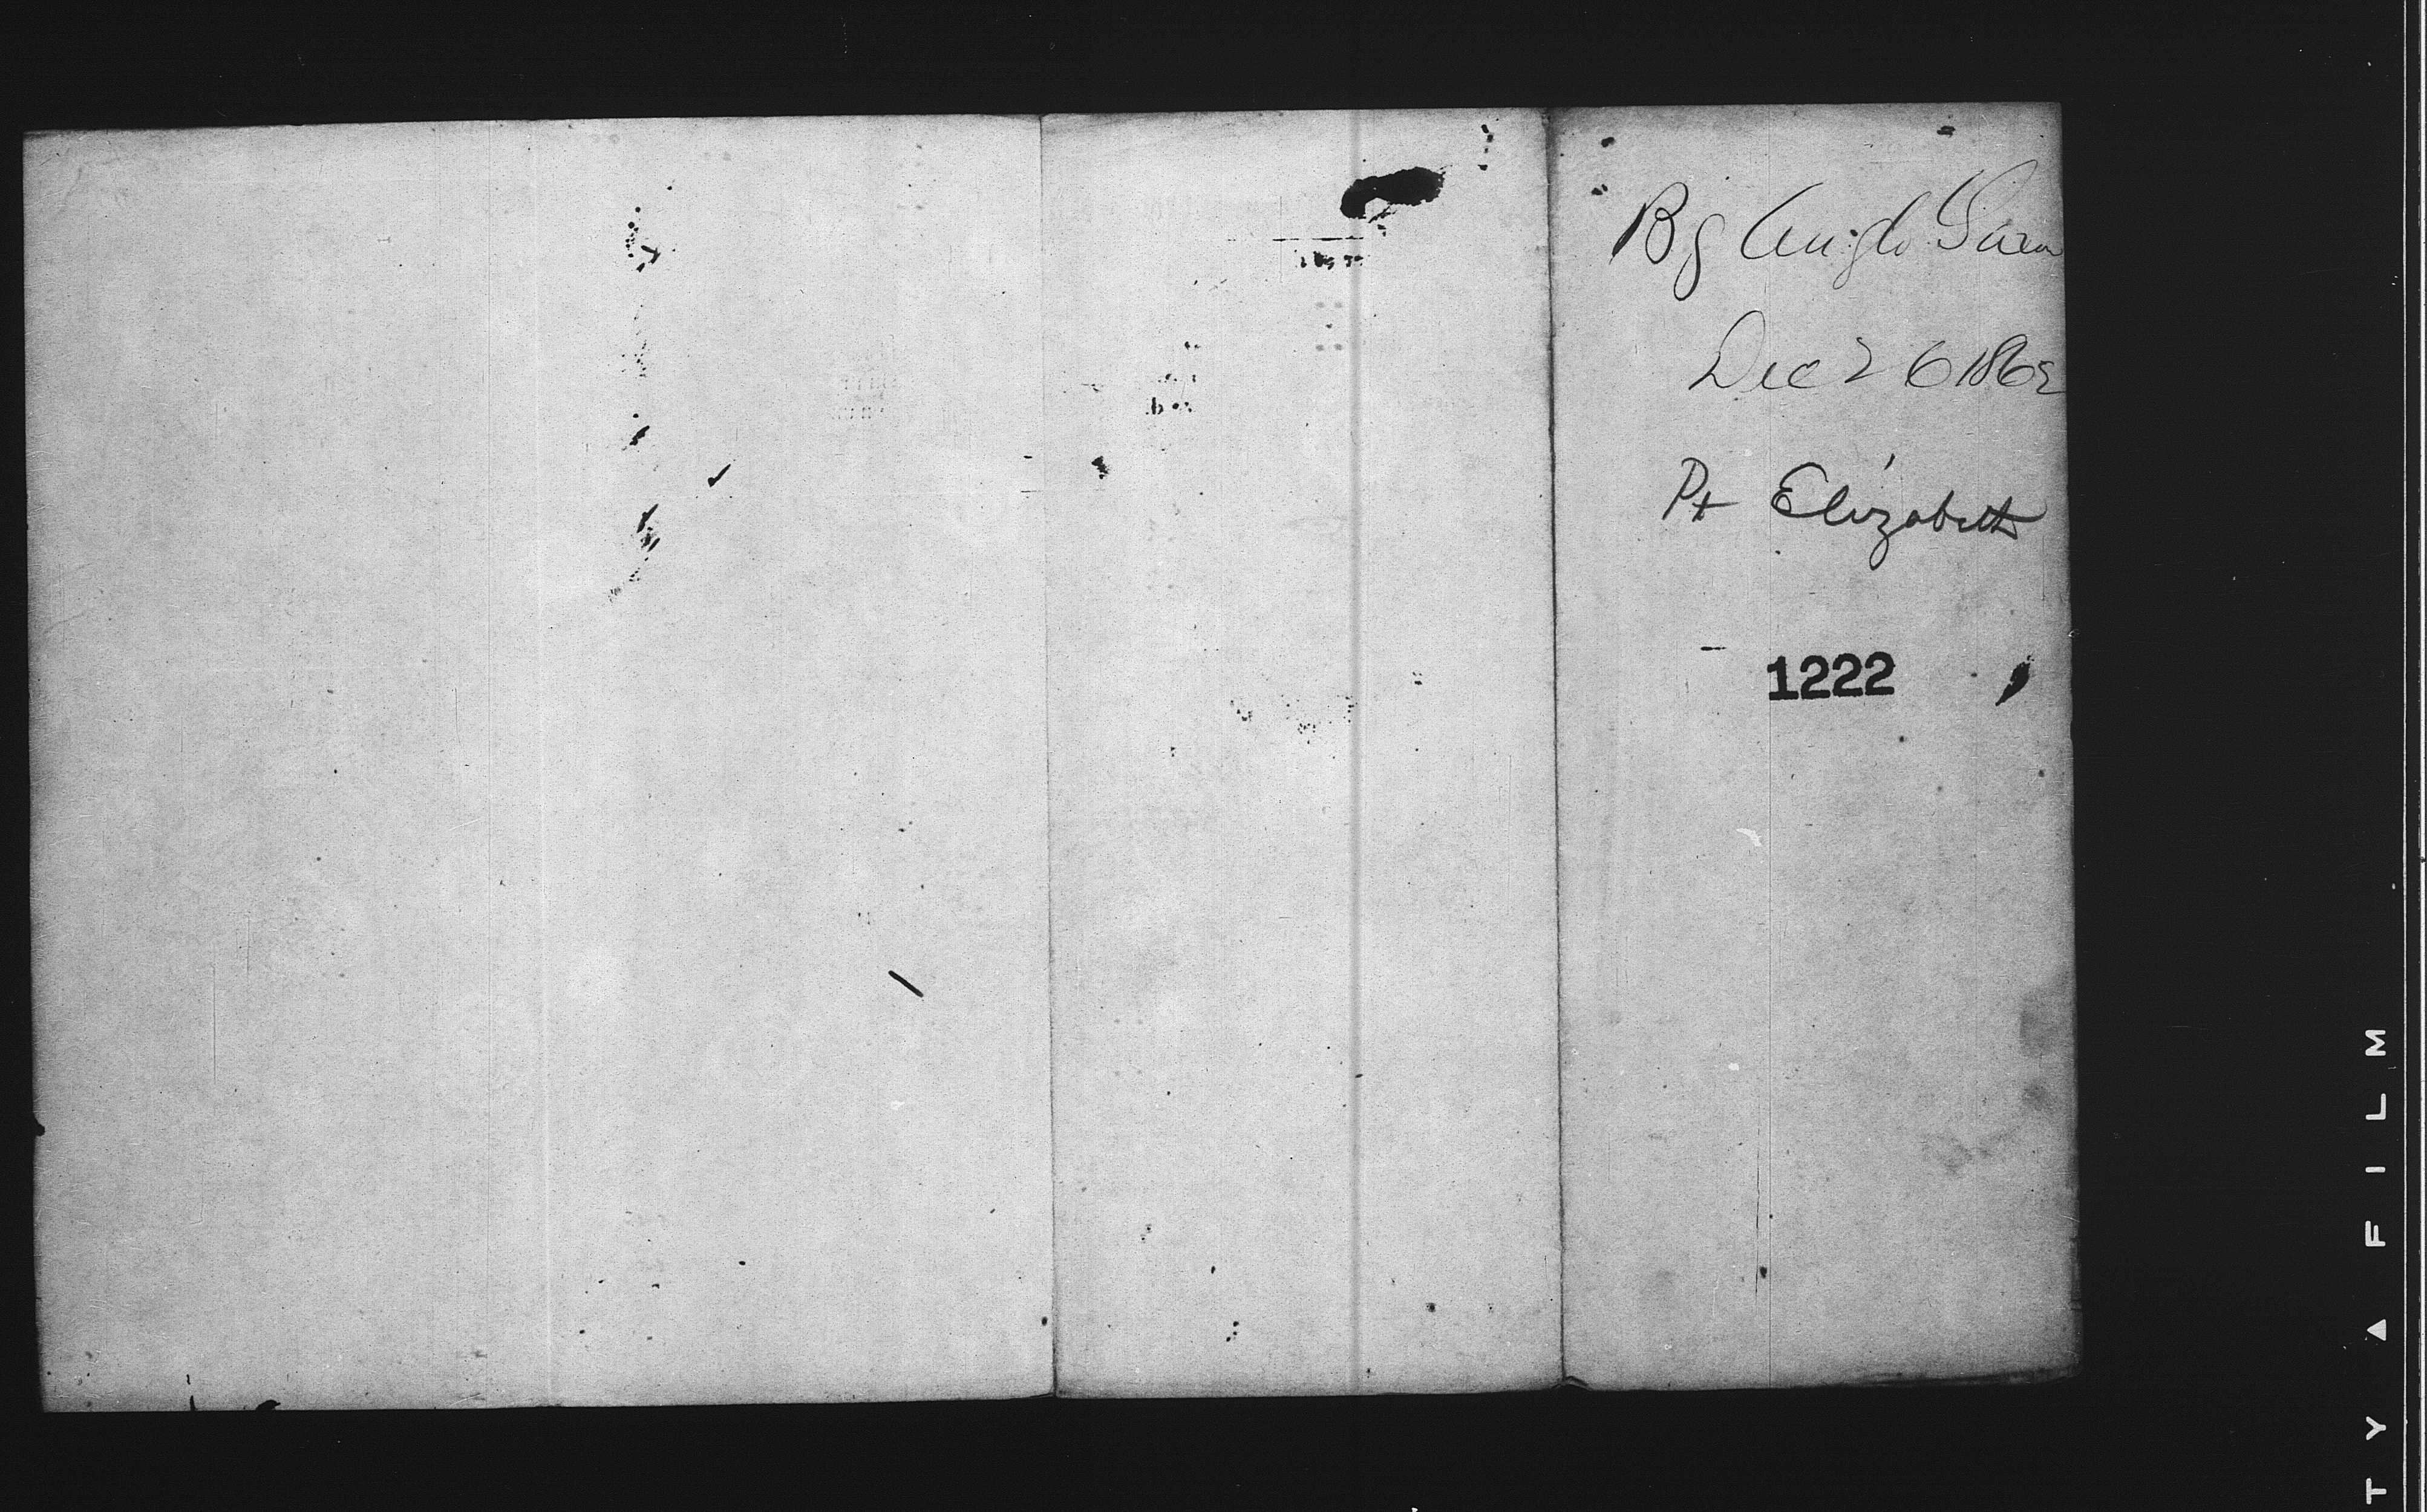 Bg Anglo Saxon
Dec 26 1862
Pt Elizabeth
1222
TY ▲ FILM